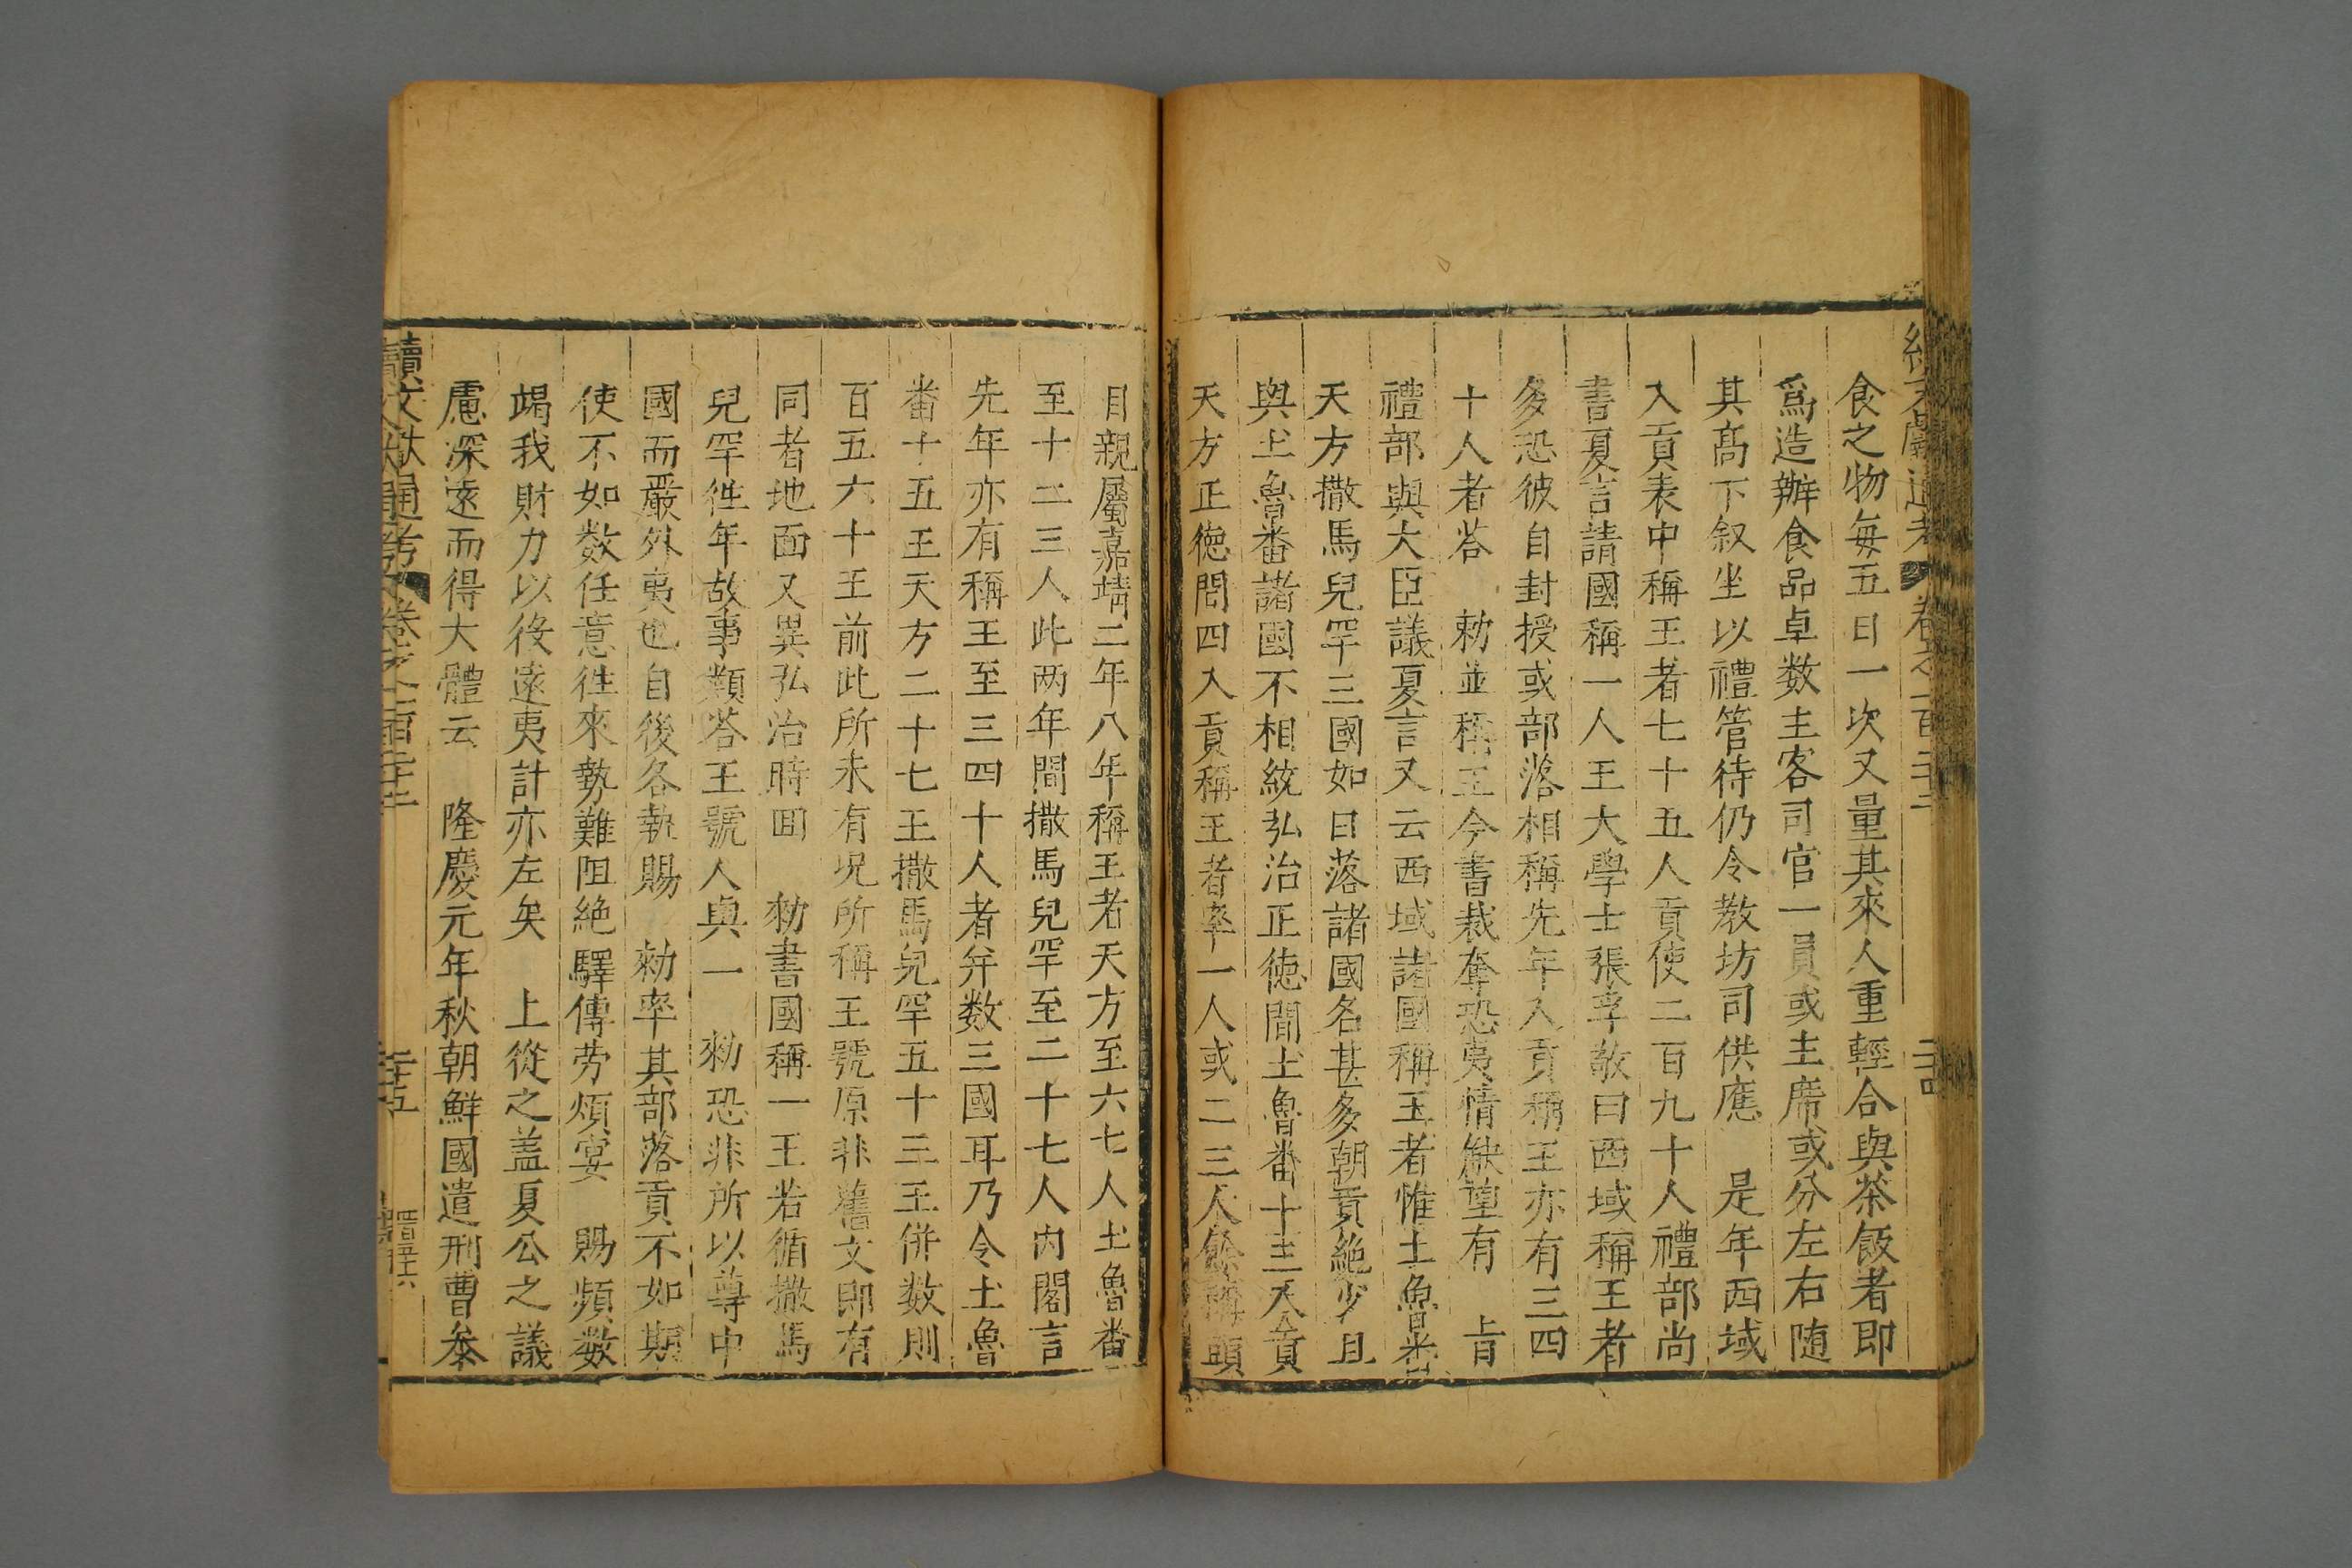 食之物每五日一次又量其來人重輕合與茶飯者即
爲造辦食品卓数主客司官一員或主席或分左右随
其高下叙坐以禮管待仍令教坊司供應 是年西域
入貢表中稱王者七十五人貢使二百九十人禮部尚
書夏言請國稱一人王大學士張孚敬曰西域稱王者
多恐彼自封授或部落相稱先年入貢稱王亦有三四
十人者荅 勑並稱王今書裁奪恐夷情觖望有 上旨
禮部與大臣議夏言又云西域諸國稱王者惟土魯畨
天方撒馬兒罕三國如日落諸國名甚多朝貢絶少且
與土魯畨諸國不相統弘治正徳間土魯畨十三入貢
天方正徳間四入貢稱王者率一人或二三人餘稱頭
目親屬嘉靖二年八年稱王者天方至六七人土魯畨
至十二三人此两年間撒馬兒罕至二十七人内閣言
先年亦有稱王至三四十人者并数三國耳乃今土魯
畨十五王天方二十七王撒馬兒罕五十三王併数則
百五六十王前此所未有况所稱王號原非舊文即有
同者地面又異弘治時囬 勑書國稱一王若循撒馬
兒罕徃年故事類荅王號人與一 勑恐非所以尊中
國而嚴外夷也自後各執賜 勑率其部落貢不如期
使不如数任意徃來勢難阻絶驛傳劳煩宴 賜頻数
竭我財力以後遠夷計亦左矣 上從之盖夏公之議
慮深遠而得大體云 隆慶元年秋朝鮮國遣刑曹叅
續文献通考 卷之二百三十三
三十五